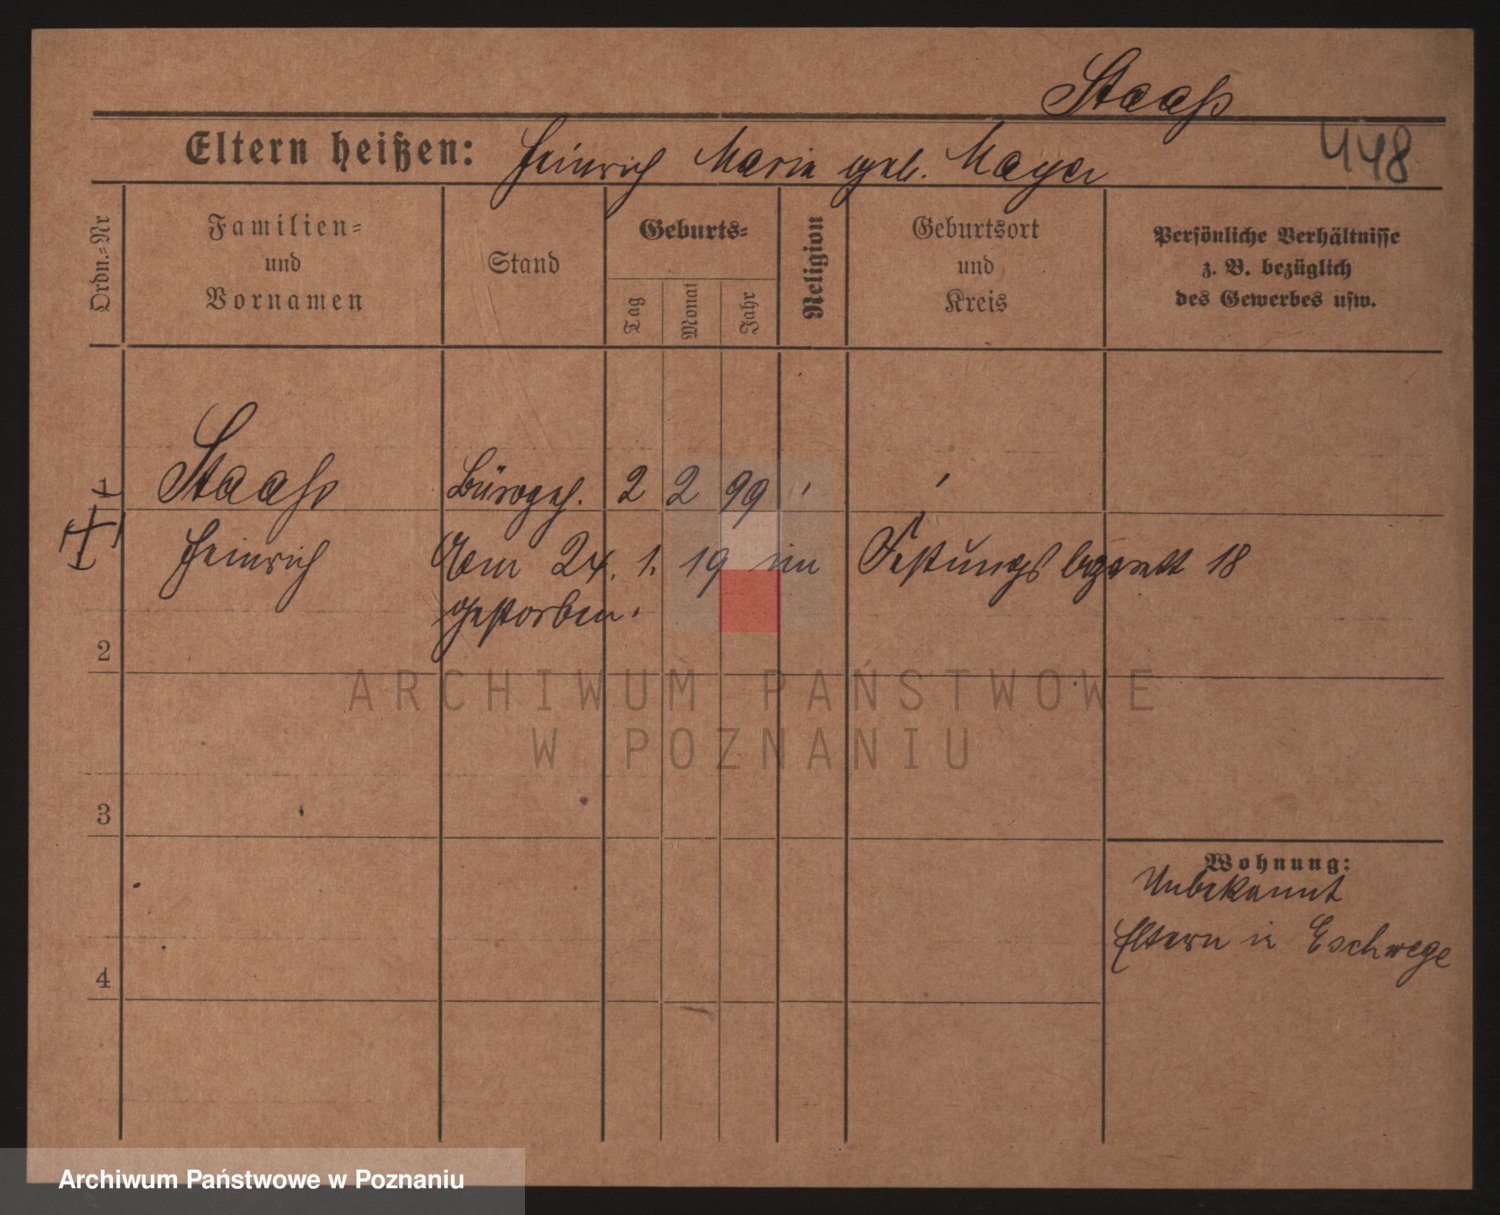 Staaß
Eltern heißen: Heinrich Marie geb. Mayer
448
Ordn.-Nr
Familien-
und
Vornamen
Stand
Geburts-
Tag
Monat
Jahr
Religion
Geburtsort
und
Kreis
Persönliche Verhältnisse
z. B. bezüglich
des Gewerbes usw.
1
Staaß
Bürogeh. 2 2 99
Heinrich
Am 24. 1. 19 im Festungslazarett 18
gestorben.
2
3
4
Wohnung:
Unbekannt
Eltern in Eschwege
ARCHIWUM PAŃSTWOWE
W POZNANIU
Archiwum Państwowe w Poznaniu